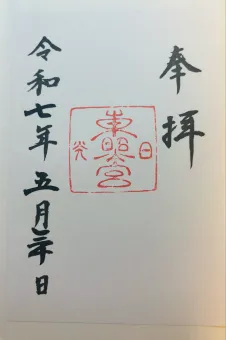 奉拝
日
東照宮
光
令和七年五月三日